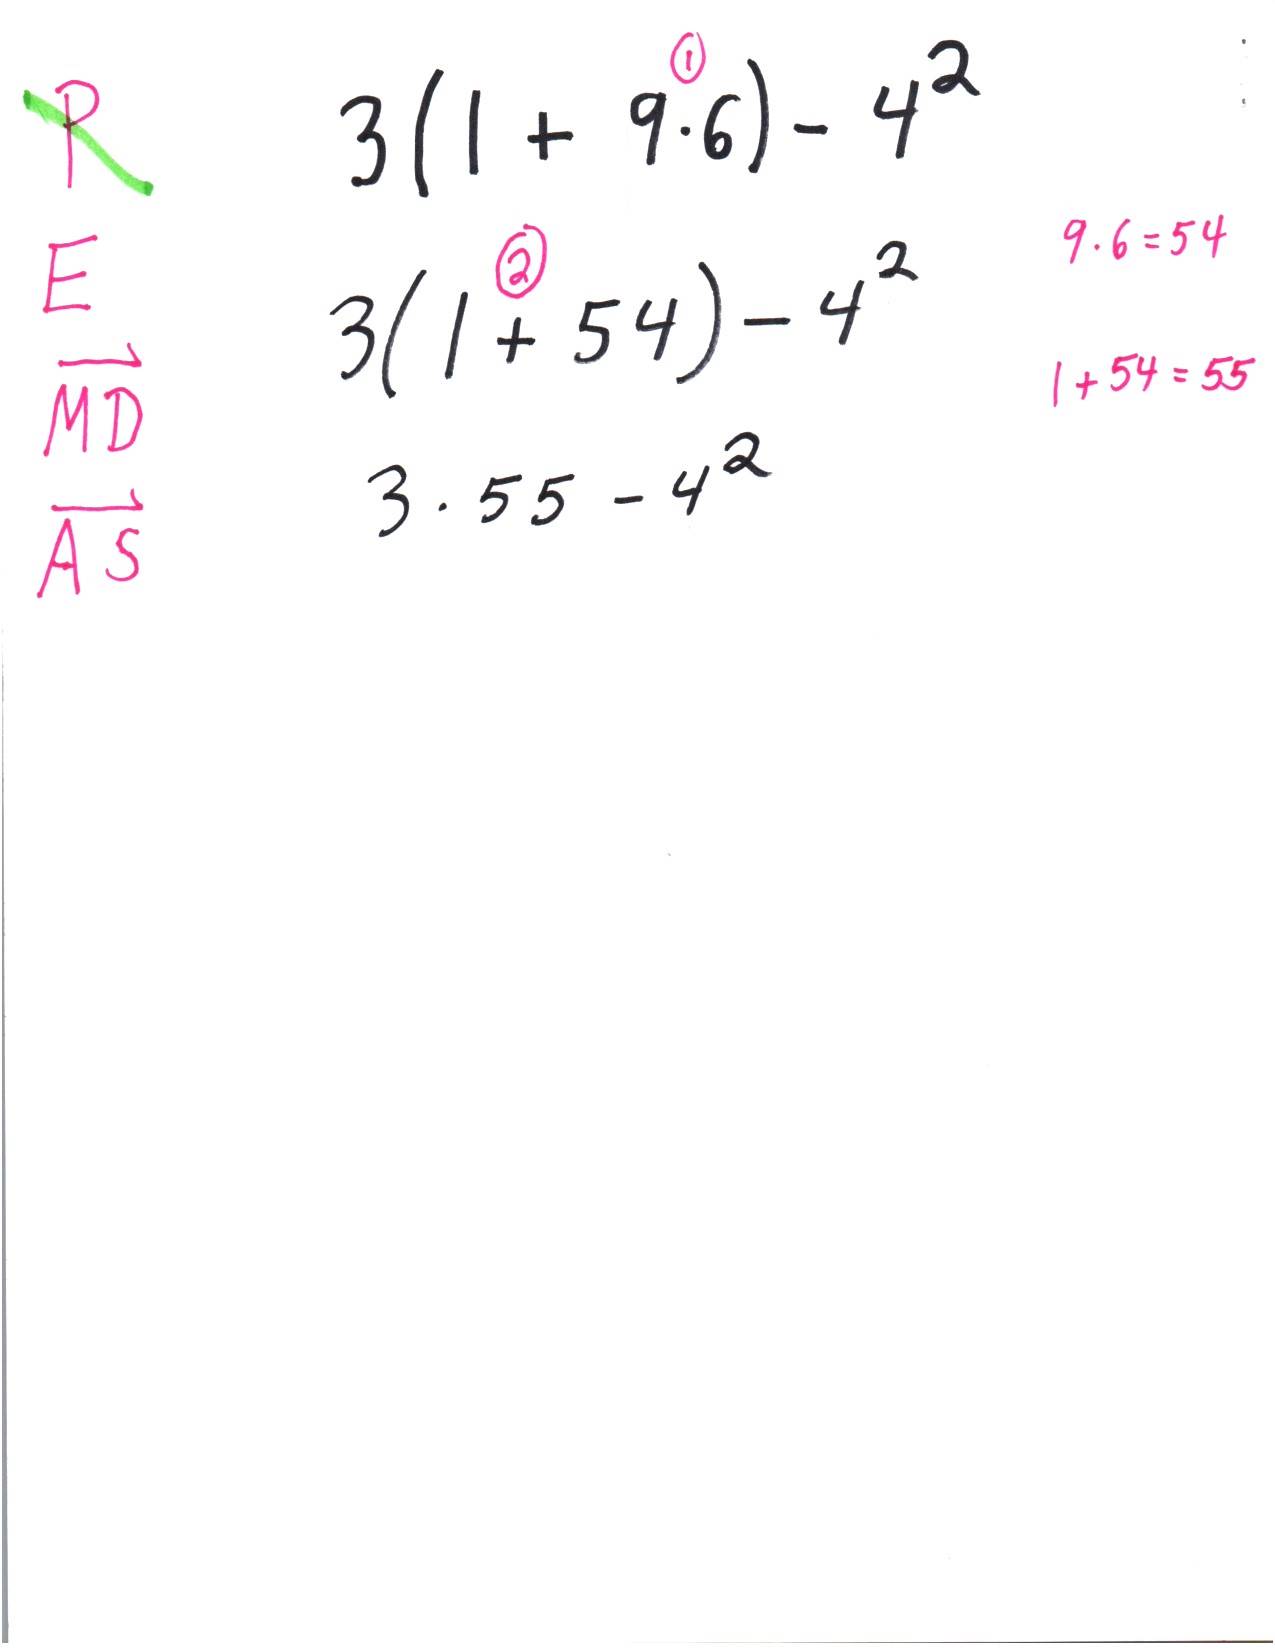 P
E
MD
AS
①
3(1 + 9·6) - 4²
②
3(1 + 54) - 4²
3 · 55 - 4²
9·6=54
1+54=55